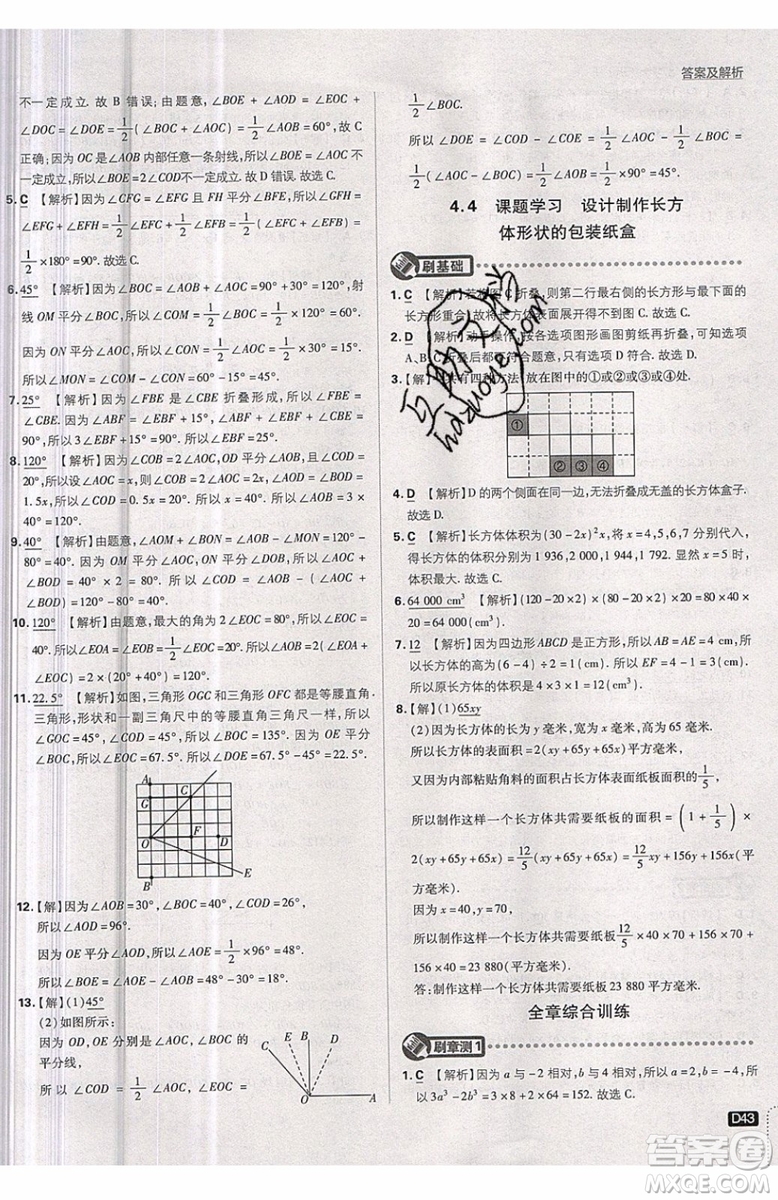 答案及解析
不一定成立. 故 B 错误; 由题意, ∠BOE + ∠AOD = ∠EOC +
∠DOC = ∠DOE = 1/2 (∠BOC + ∠AOC) = 1/2 ∠AOB = 60°, 故 C
正确; 因为 OC 是∠AOB 内部任意一条射线, 所以∠BOE = ∠AOC 不
一定成立, 所以∠BOE = 2∠COD不一定成立. 故 D 错误. 故选 C.
5. C 【解析】因为∠GFC = ∠EFG 且 FH 平分∠BFE, 所以∠GFH =
∠EFG + ∠EFH = 1/2 ∠EFC + 1/2 ∠EFB = 1/2 (∠EFC + ∠EFB) =
1/2 × 180° = 90°. 故选 C.
6. 45° 【解析】因为∠BOC = ∠AOB + ∠AOC = 90° + ∠AOC, 射
线 OM 平分∠BOC, 所以∠COM = 1/2 ∠BOC = 45° + 1/2 ∠AOC.
因为 ON 平分∠AOC, 所以∠CON = 1/2 ∠AOC.
所以∠MON = ∠COM - ∠CON = 45°.
7. 25° 【解析】因为∠FBE 是∠CBE 折叠形成, 所以∠FBE =
∠CBE. 因为∠ABF = ∠EBF + 15°, ∠ABF + ∠FBE + ∠CBE =
90°, 所以∠EBF + 15° + ∠EBF + ∠EBF = 90°. 所以∠EBF = 25°.
8. 120° 【解析】因为∠COB = 2∠AOC, OD 平分∠AOB, ∠COD =
20°, 所以设∠AOC = x, 则∠BOC = 2x. 所以∠AOD = ∠BOD =
1.5x, 所以∠COD = 0.5x = 20°. 所以 x = 40°. 所以∠AOB = 3 ×
40° = 120°.
9. 40° 【解析】由题意, ∠AOM + ∠BON = ∠AOB - ∠MON = 120° -
80° = 40°. 因为 OM 平分∠AOC, ON 平分∠BOD, 所以∠AOC +
∠BOD = 2(∠AOM + ∠BON) = 80°. 所以∠COD = ∠AOB - (∠AOC +
∠BOD) = 120° - 80° = 40°.
10. 120° 【解析】由题意, 最大的角为 2∠EOC = 80°, 所以∠EOC =
40°. 所以∠MOE = ∠EOA = 1/2 ∠EOC = 20°. 所以 2(∠EOA +
∠EOC) = 2(20° + 40°) = 120°.
11. 22.5° 【解析】如图, 三角形 OGC 和三角形 OFC 都是等腰直角
三角形, 形状和一副三角尺中的等腰直角三角形尺一样, 所以
∠GOC = 45°, 所以∠BOC = 135°. 因为 OE 平分∠BOC, 所以
∠COE = 67.5°. 因为∠FOC = 45°, 所以∠DOE = 67.5° - 45° = 22.5°.
A
G
C
O
F
D
B
E
12. 【解】因为∠AOB = 30°, ∠BOC = 40°, ∠COD = 26°,
所以∠AOD = 96°.
因为 OE 平分∠AOD, 所以∠AOE = 1/2 × 96° = 48°.
所以∠BOE = ∠AOE - ∠AOB = 48° - 30° = 18°.
13. 【解】(1)45°
(2)如图所示:
因为 OD, OE 分别是∠AOC, ∠BOC 的
平分线,
所以 ∠COD = 1/2 ∠AOC, ∠COE =
C
E
B
D
O
A
1/2 ∠BOC.
所以 ∠DOE = ∠COD - ∠COE = 1/2 ∠AOC -
1/2 ∠BOC = 1/2 (∠AOC - ∠BOC) = 1/2 × 90° = 45°.
4.4 课题学习 设计制作长方
体形状的包装纸盒
刷基础
1. C 【解析】若按图 C 折叠, 则第二行最右侧的长方形与最下面的
长方形重合, 故将长方体表面展开不能得到 C. 故选 C.
2. D 【解析】动手操作, 按各选项图形画图剪纸再折叠, 可知选项
A、B、C 折叠后都不符合题意, 只有选项 D 符合. 故选 D.
3. 【解】共有四种方法, 放在图中的①或②或③或④处.
①
② ③ ④
4. D 【解析】D 的两个侧面在同一边, 无法折叠成无盖的长方体盒子.
故选 D.
5. C 【解析】长方体体积为(30 - 2x)²x, 将 4,5,6,7 分别代入,
得长方体的体积分别为 1 936, 2 000, 1 944, 1 792. 显然 x = 5 时
体积最大. 故选 C.
6. 64 000 cm³ 【解析】(120 - 20×2)×(80 - 20×2)×20 = 80×40×
20 = 64 000 (cm³).
7. 12 【解析】因为四边形 ABCD 是正方形, 所以 AB = AE = 4 cm.
所以长方体的高为 (6 - 4) ÷ 2 = 1 (cm). 所以 EF = 4 - 1 = 3 (cm).
所以原长方体的体积是 3×4×1 = 12 (cm³).
8. 【解】(1)65xy
(2)因为长方体的长为 y 毫米, 宽为 x 毫米, 高为 65 毫米,
所以长方体的表面积 = 2(xy + 65y + 65x)平方毫米.
又因为内部粘贴角料的面积占长方体表面纸板面积的 1/5,
所以制作这样一个长方体共需要纸板的面积 = (1 + 1/5) ×
2(xy + 65y + 65x) = 12/5 (xy + 65y + 65x) = 12/5 xy + 156y + 156x(平
方毫米).
因为 x = 40, y = 70,
所以制作这样一个长方体共需要纸板 12/5 × 40 × 70 + 156 ×
70 + 156 × 40 = 23 880(平方毫米).
答:制作这样一个长方体共需要纸板 23 880 平方毫米.
全章综合训练
刷章测 1
1. C 【解析】因为 a 与 -2 相对, b 与 4 相对, 所以 a = 2, b = -4, 所
以 3a³ - 2b³ = 3×8 + 2×64 = 152. 故选 C.
D43
互助文化
hdzuoye.com
答案圈
MXQE.COM